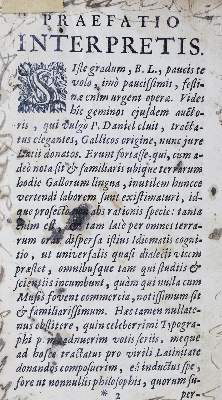 PRAEFATIO
INTERPRETIS.
Siste gradum, B. L., paucis te
volo, imò paucissimis, festi-
næ enim urgent operæ. Vides
hic geminos ejusdem aucto-
ris, qui vulgò P. Daniel cluit, tracta-
tus elegantes, Gallicos origine, nunc jure
Latii donatos. Erunt fortasse, qui, cum a-
deò nota sit & familiaris ubique terrarum
hodie Gallorum lingua, inutilem huncce
vertendi laborem sint existimaturi, id-
que profectò rationis specie: tanta
enim est tam latè per omnes terra-
rum oras dispersa istius Idiomatis cogni-
tio, ut universalis quasi dialecti vicem
præstet, omnibusque tam qui studiis &
scientiis incumbunt, quàm qui nulla cum
Musis fovent commercia, notissimum sit
& familiarissimum. Hæc tamen nullate-
nus obstitere, quin celeberrimi Typogra-
phi p. m. adnuerim votis seriis, meque
ad hosce tractatus pro virili Latinitate
donandos composuerim, eâ inductus spe,
fore ut nonnullis philosophis, quorum su-
* 2
per-